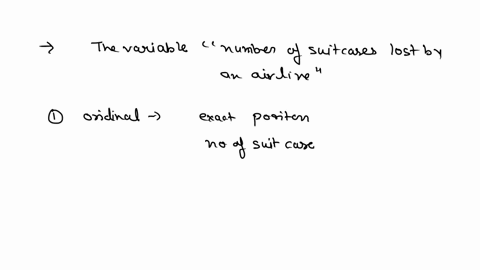 → The variable "number of suitcases lost by
an airline"
① oridinal → exact positen
no of suit case